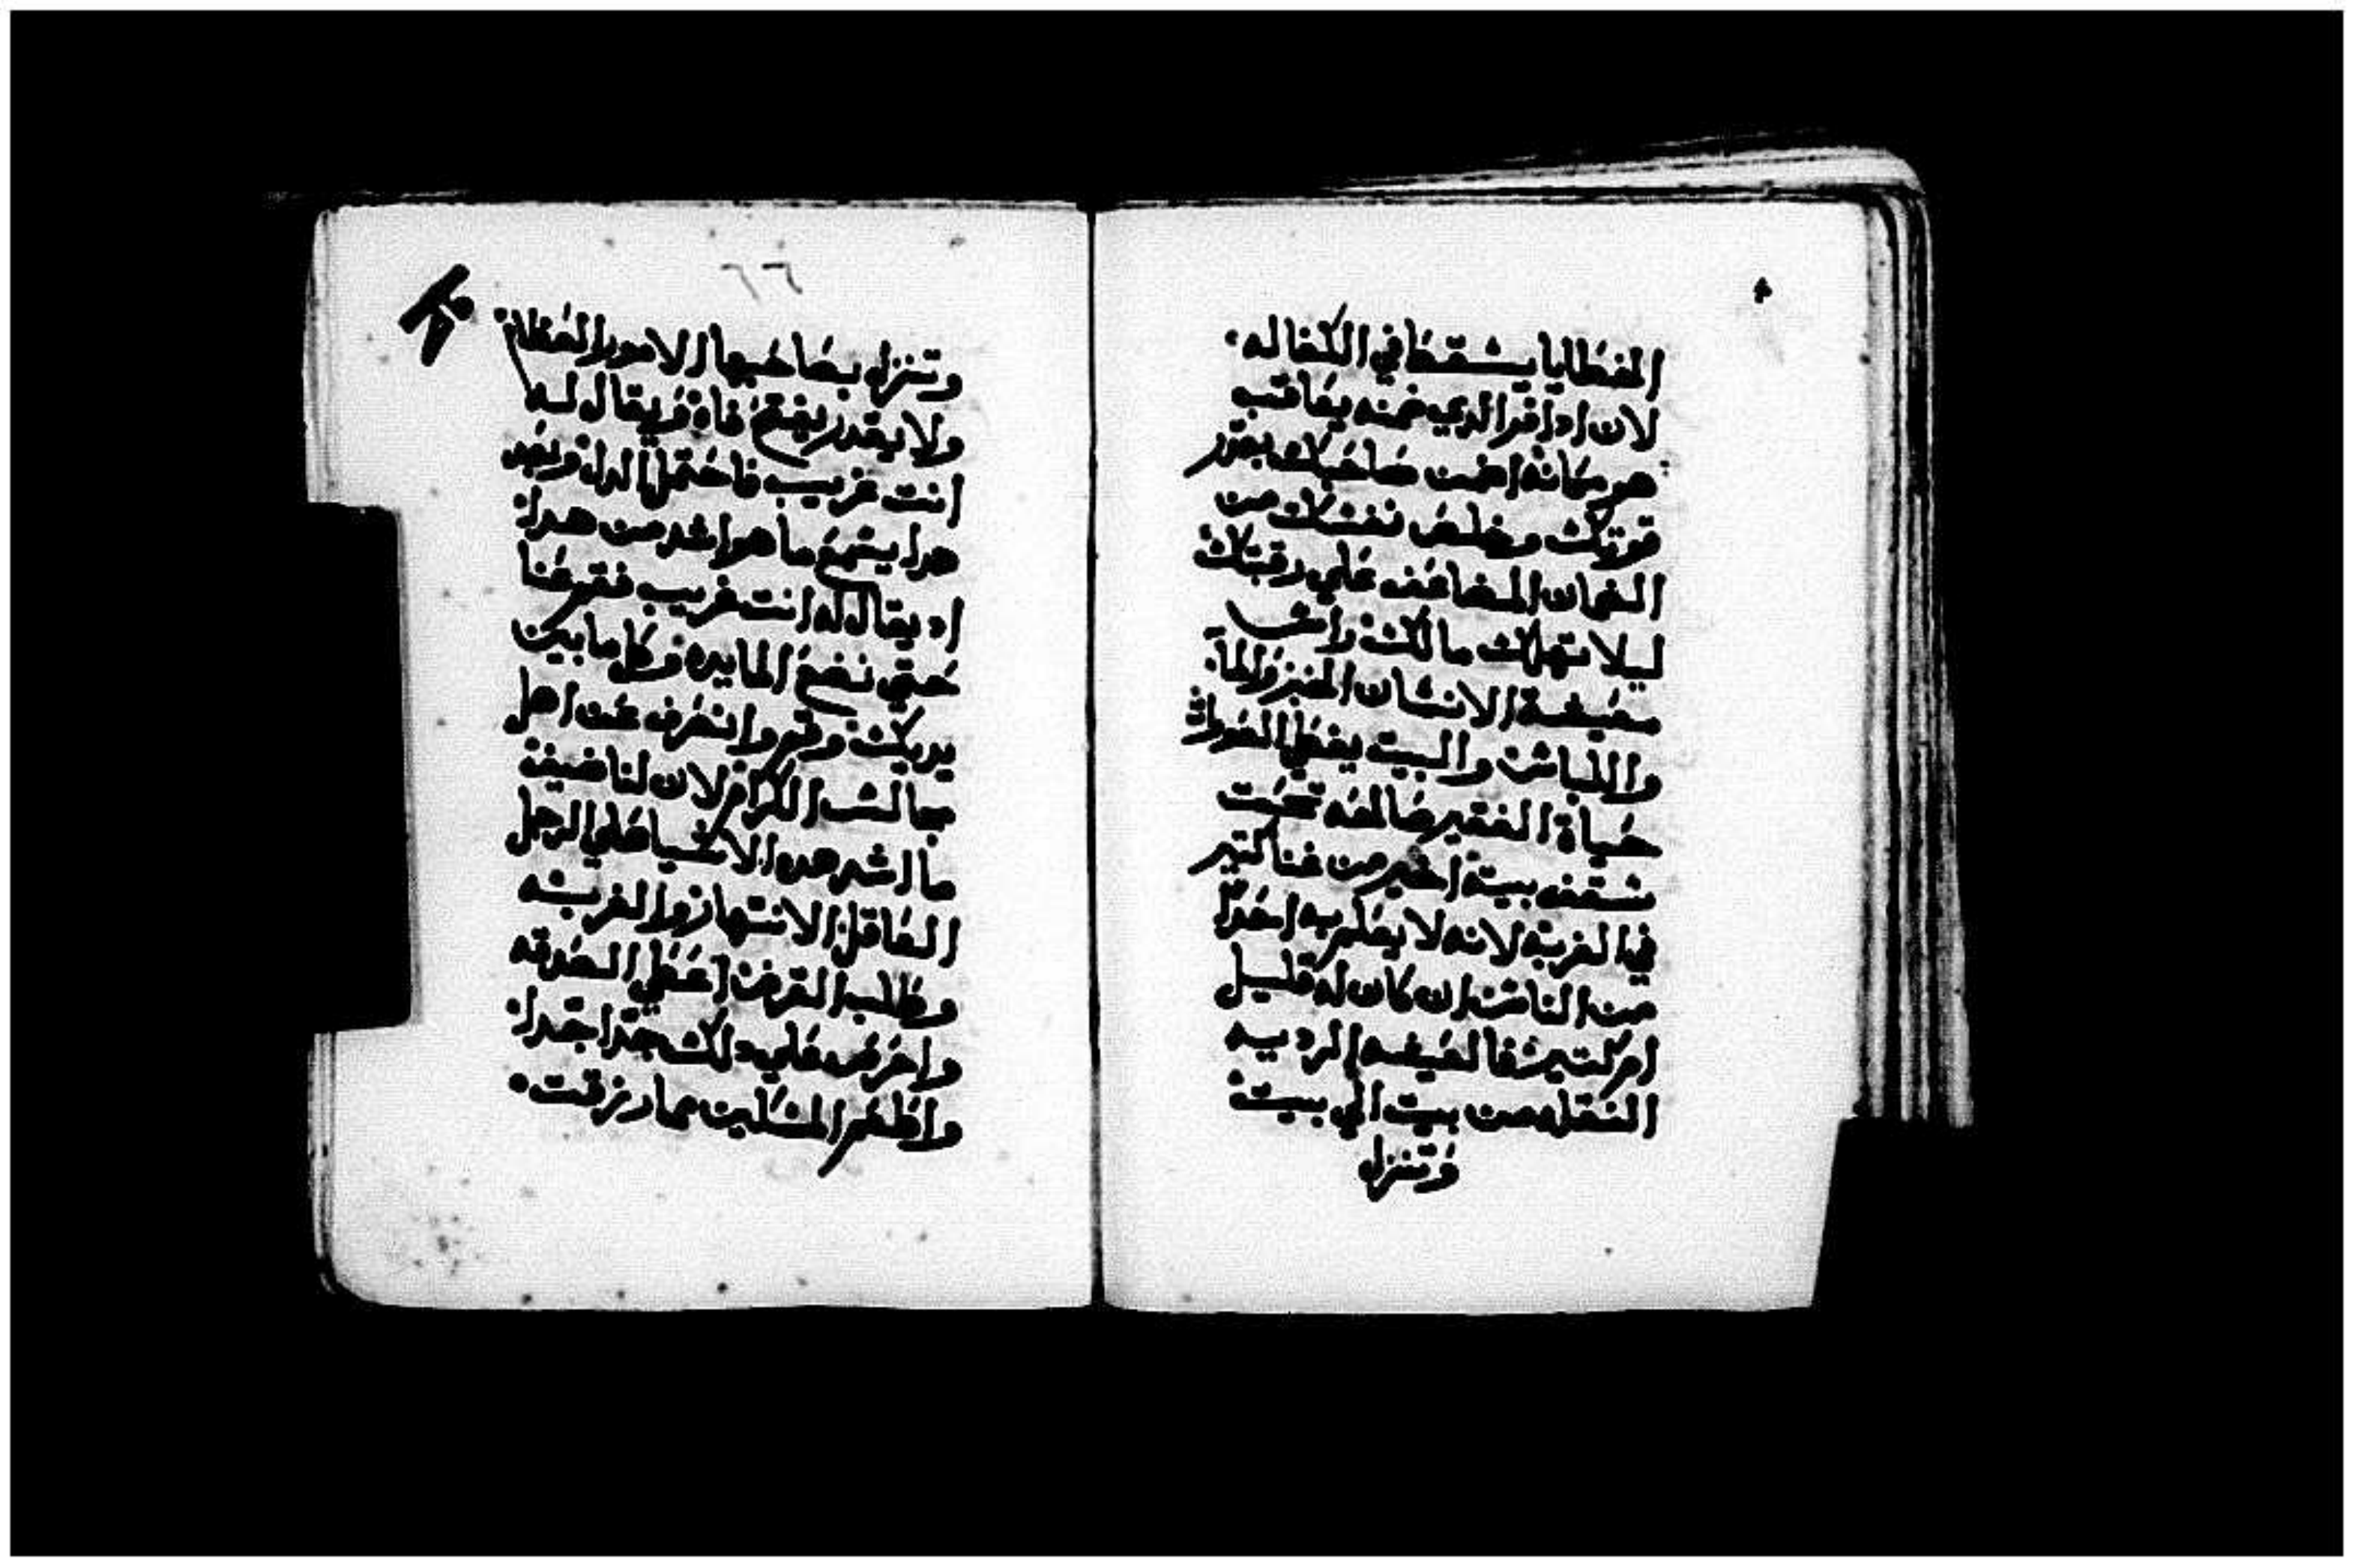 الخطايا يسقط في الكفاله.
لان ادا فر الدي ضمنه يعاقب
هو مكانه اضمن صاحبك بقدر
قوتك وخلص نفسك من
الضمان المضاعف علي رقبتك
ليلا تهلك مالك راس
معيشة الانسان الخبز والما.
واللباس والبيت يغطي العورات
حياة الفقير صالحه تحت
سقف بيته اخير من غنا كتير
في الغربه لانه لا يعلم به احد
من الناس ان كان له قليل
ام كتير فالعيشه الرديه
النقله من بيت الي بيت
وتنزل
٦٦
وتنزل بصاحبها الامور العظا
ولا يقدر يفتح فاه ويقال له
انت غريب فاحتمل الدل وبعد
هدا يسمع ما هو اشد من هدا
اد يقال له انت غريب فقم عنا
حتي نضع المايده وكل ما بين
يديك وقم وانصرف عن اهل
مجالس الكرام لان لنا ضيف
ما اشد هده الاشيا علي الرجل
العاقل الانتهاز والغربه
وطلب القرض اعطي الصدقه
واحرص علي دلك جدا جدا
واطعم المساكين مما رزقت.